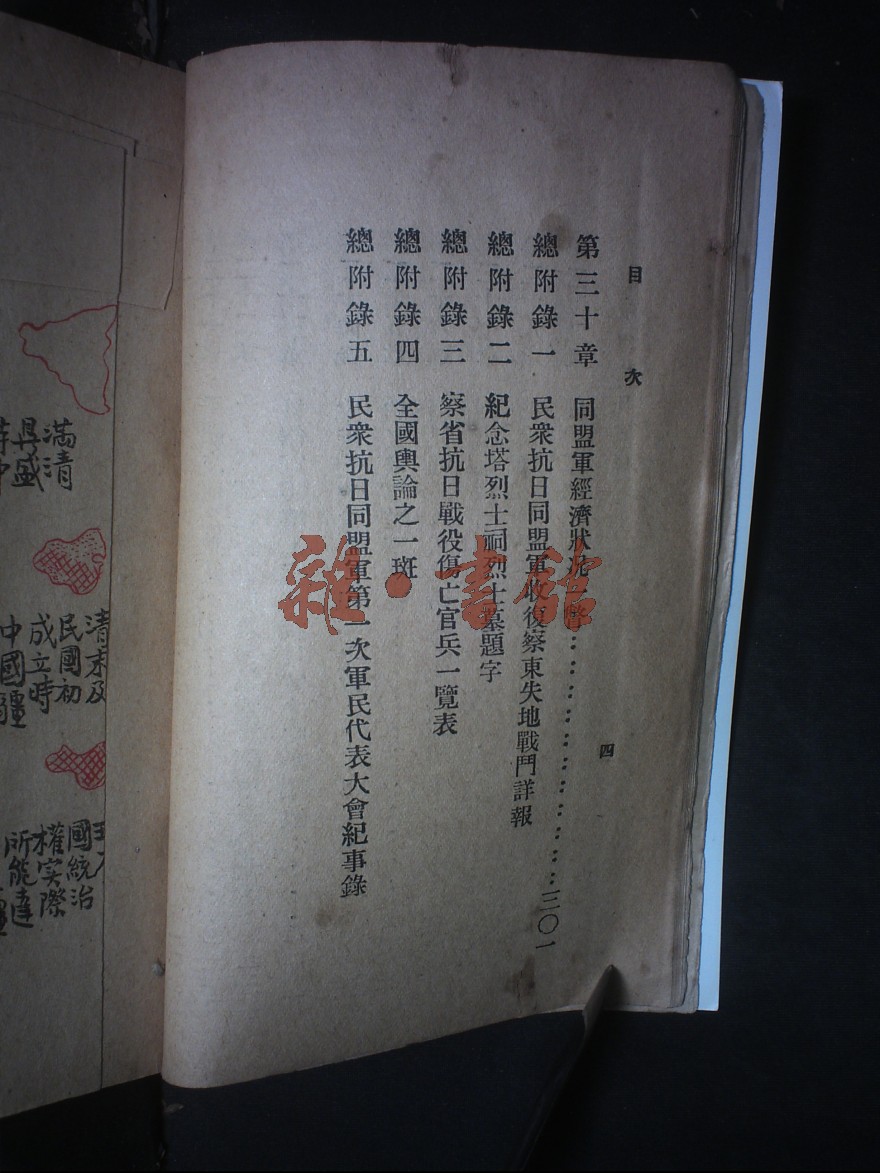 目次
第三十章 同盟軍經濟狀況一瞥………………三〇一
總附錄一 民衆抗日同盟軍收復察東失地戰鬥詳報
總附錄二 紀念塔烈士祠烈士墓題字
總附錄三 察省抗日戰役傷亡官兵一覽表
總附錄四 全國輿論之一斑
總附錄五 民衆抗日同盟軍第一次軍民代表大會紀事錄
四
雜·書館
滿清
具盛
清末及
民國初
成立時
中國疆
國統治
權实際
所能達